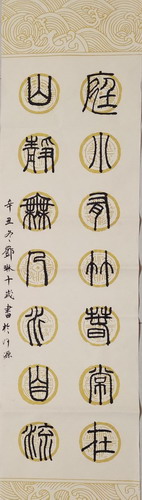 庭小有竹春常在
山靜無人水自流
辛丑冬 琳十歲書於沂源